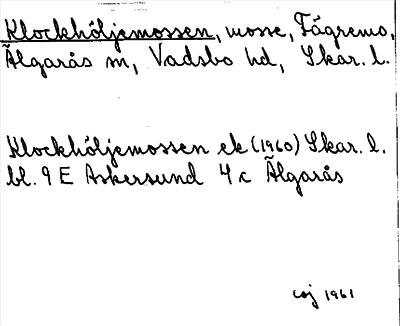 Klockhöljemossen, mosse, Fågremo,
Älgarås sn, Vadsbo hd, Skar. l.
Klockhöljemossen ek (1960) Skar. l.
bl. 9 E Askersund 4 c Älgarås
1961